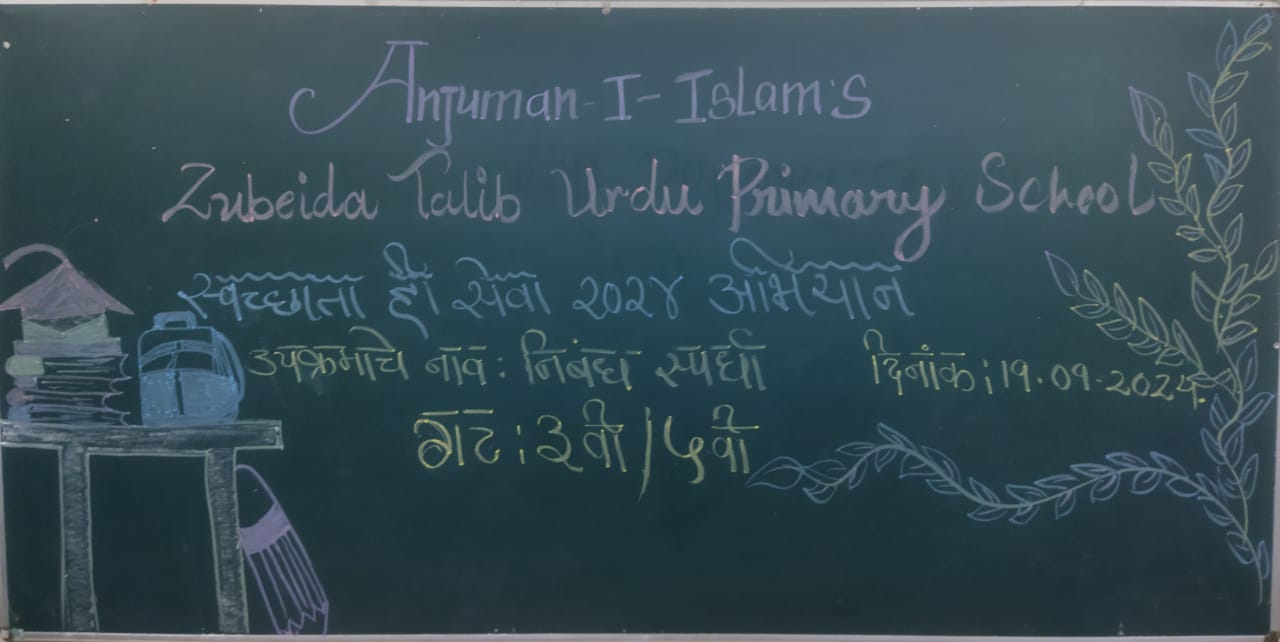 Anjuman-I-Islam's
Zubeida Talib Urdu Primary School
स्वच्छाता ही सेवा २०२४ अभियान
उपक्रमाचे नाव : निबंध स्पर्धा दिनांक : १९.०९.२०२४
गट : ३वी / ५वी